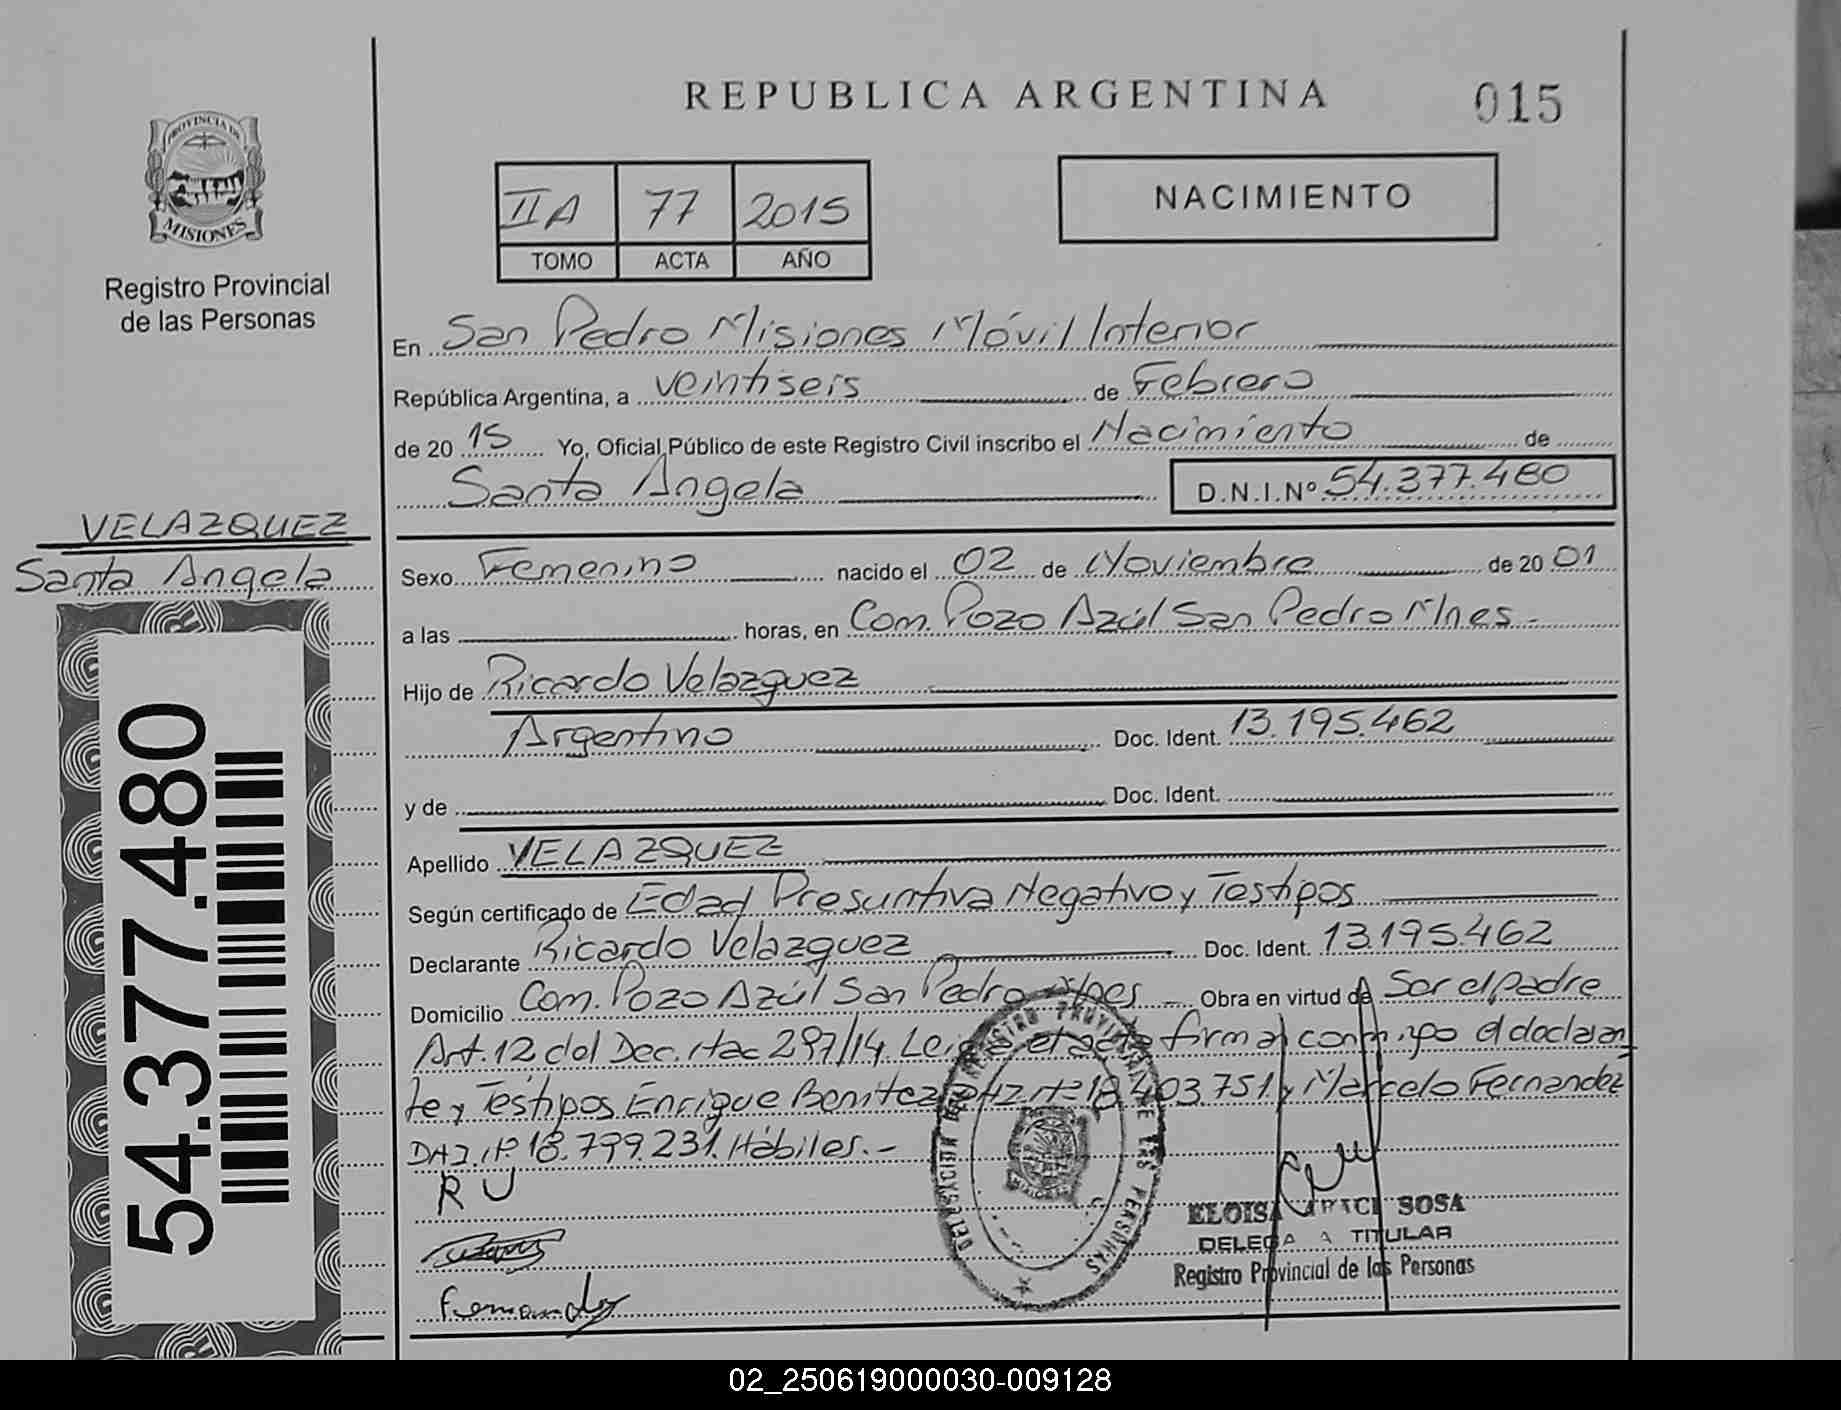 REPUBLICA ARGENTINA
015
PROVINCIA DE
MISIONES
Registro Provincial
de las Personas
IIA 77 2015
TOMO ACTA AÑO
NACIMIENTO
En San Pedro Misiones Móvil Interior
República Argentina, a veintiseis de Febrero
de 20 15 Yo, Oficial Público de este Registro Civil inscribo el Nacimiento de
Santa Angela D.N.I.Nº 54.377.480
VELAZQUEZ
Santa Angela
54.377.480
Sexo Femenino nacido el 02 de Noviembre de 20 01
a las horas, en Com. Pozo Azúl San Pedro Mnes.-
Hijo de Ricardo Velazquez
Argentino Doc. Ident. 13.195.462
y de Doc. Ident.
Apellido VELAZQUEZ
Según certificado de Edad Presuntiva Negativo y Testigos
Declarante Ricardo Velazquez Doc. Ident. 13.195.462
Domicilio Com. Pozo Azúl San Pedro Mnes Obra en virtud de Ser el padre
Art. 12 del Dec. Nac 297/14. Leida el acta firman conmigo el declaran
te y Testigos Enrique Benitez Nº 18.403.751 y Marcelo Fernandez
DNI Nº 18.799.231. Hábiles.-
R U
Fernandez
DELEGACION DEL REGISTRO PROVINCIAL DE LAS PERSONAS
SOSA
DELEGADA TITULAR
Registro Provincial de las Personas
02_250619000030-009128